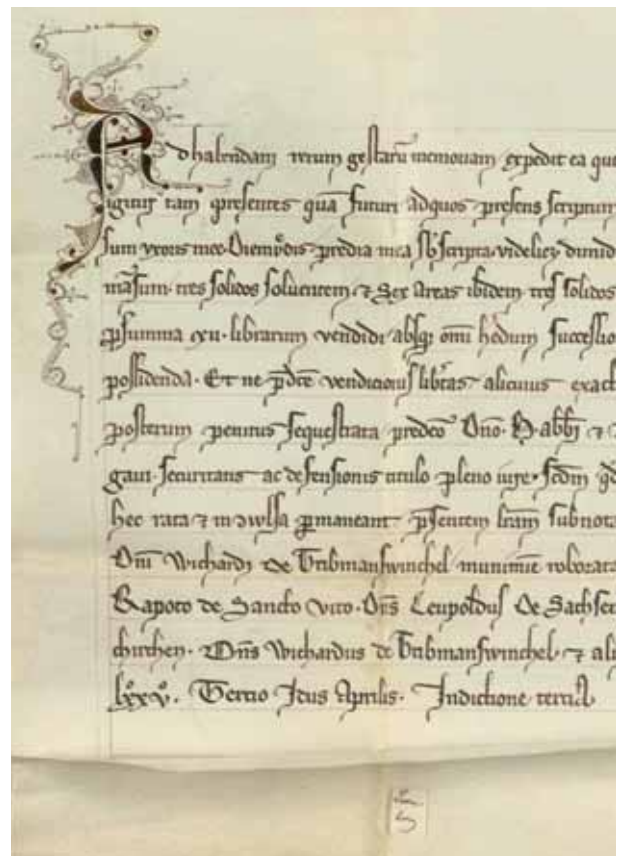 Ad habendam rerum gestarū memoriam expedit ea que
igitur tam presentes quā futuri adquos presens scriptum
sum vxoris mee predia mea sb̄scripta videlicȝ dimid
māsum tres solidos soluentem ⁊ Sex Areas ibidem tres solidos
ꝑ summa xii librarum vendidi absqȝ omī hedum successio
possidenda · Et ne p̄dc̄e vendicionis lib̄tas alicuius exact
posterum penitus sequestrata Dn̄o · H · abb̄i ⁊
gaui securitatis ac defensionis titulo pleno iure · scd̄m qd
hec rata ⁊ ꝑmaneant p̄sentem lr̄am subnota
Dn̄i Wichardi de munimīe roborata
Rapoto de Sancto vito · Dn̄s Leupoldus De Sachsen
chirchen · Dn̄s Wichardus de ⁊ ali
lxͦxvͦ · Tercio Idus Aprilis · Indictione tercia